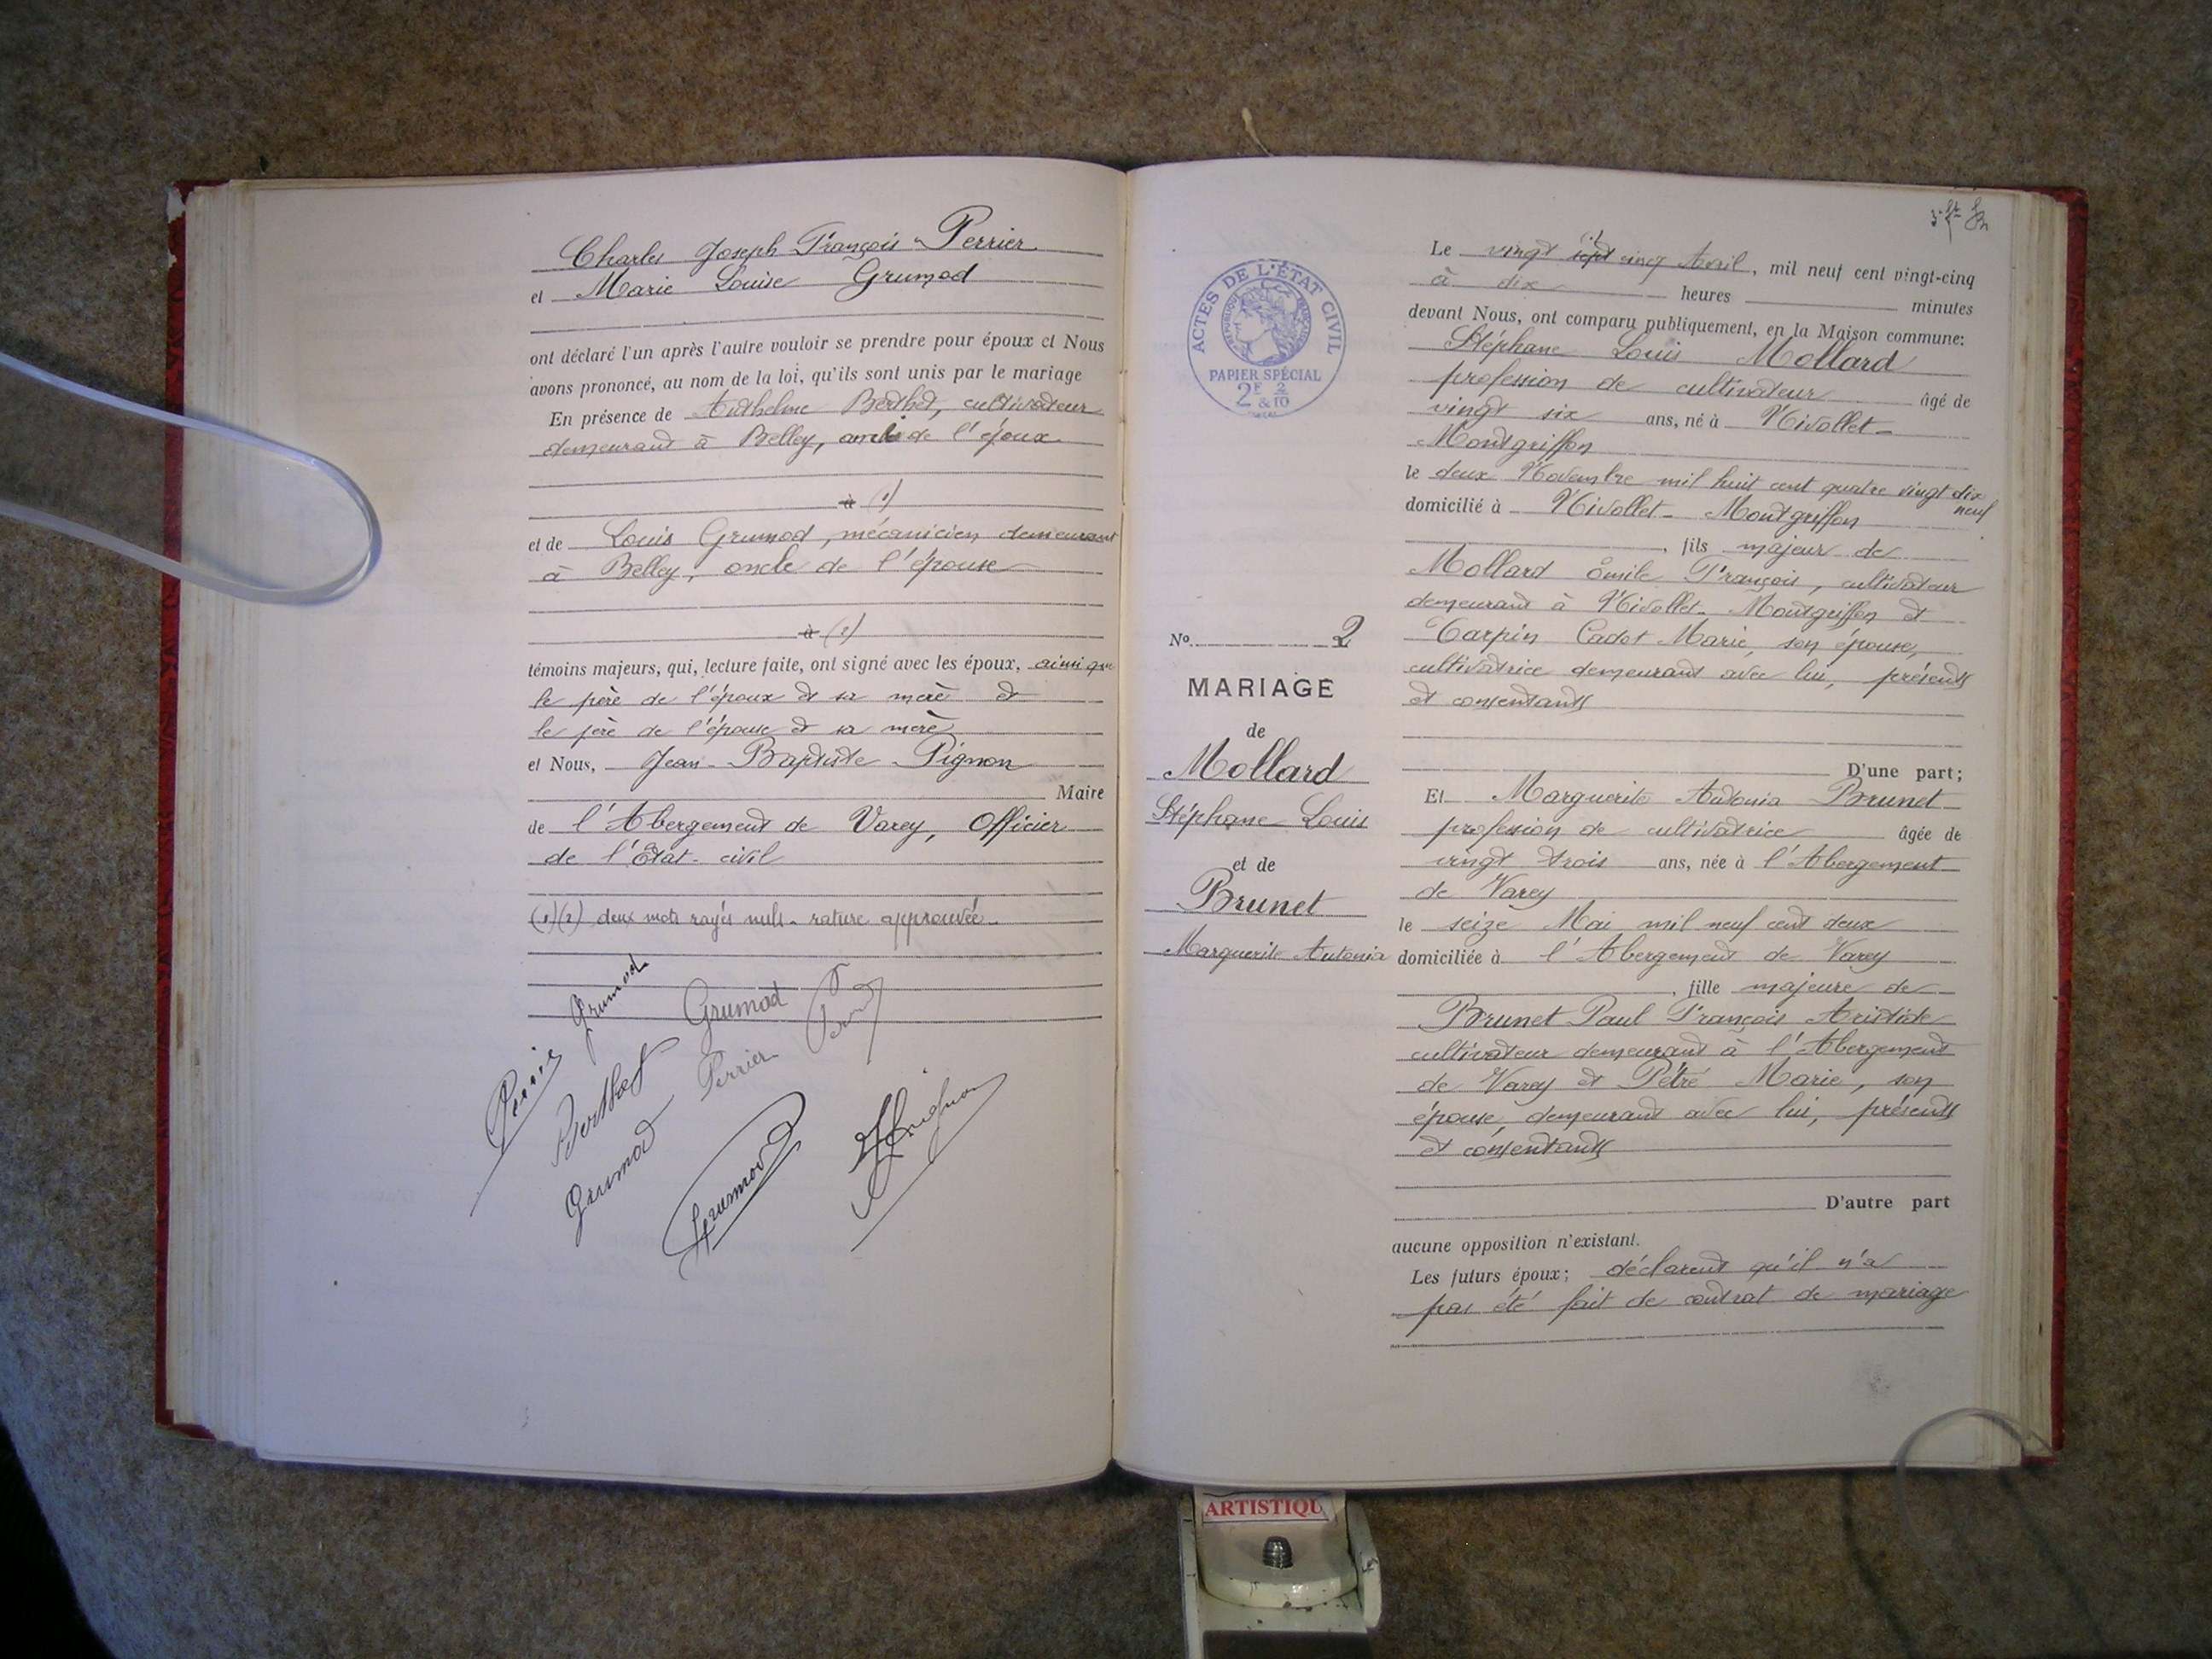 Charles Joseph François Perrier
et Marie Louise Grumod
ont déclaré l'un après l'autre vouloir se prendre pour époux et Nous
avons prononcé, au nom de la loi, qu'ils sont unis par le mariage
En présence de Anthelme Berthet, cultivateur
demeurant à Belley, oncle de l'époux
à (1)
et de Louis Grumod, mécanicien demeurant
à Belley, oncle de l'épouse
à (2)
témoins majeurs, qui, lecture faite, ont signé avec les époux, ainsi que
le père de l'époux et sa mère et
le père de l'épouse et sa mère
et Nous, Jean-Baptiste Pignon
Maire
de l'Abergement de Varey, Officier
de l'État-civil
(1)(2) deux mots rayés nuls - rature approuvée.
Grumod
Grumod
Perrier
Berthet
Perrier
Grumod
Grumod
ACTES DE L'ÉTAT CIVIL
RÉPUBLIQUE FRANÇAISE
PAPIER SPÉCIAL
2F 2
& 10
No 2
MARIAGE
de
Mollard
Stéphane Louis
et de
Brunet
Marguerite Antonia
Le vingt sept cinq Avril, mil neuf cent vingt-cinq
à dix heures minutes
devant Nous, ont comparu publiquement, en la Maison commune:
Stéphane Louis Mollard
profession de cultivateur âgé de
vingt six ans, né à Nivollet-
Montgriffon
le deux Novembre mil huit cent quatre vingt dix
neuf
domicilié à Nivollet-Montgriffon
, fils majeur de
Mollard Émile François, cultivateur
demeurant à Nivollet-Montgriffon et
Tarpin Cadet Marie, son épouse,
cultivatrice demeurant avec lui, présents
et consentants
D'une part;
Et Marguerite Antonia Brunet
profession de cultivatrice âgée de
vingt trois ans, née à l'Abergement
de Varey
le seize Mai mil neuf cent deux
domiciliée à l'Abergement de Varey
, fille majeure de
Brunet Paul François Aristide
cultivateur demeurant à l'Abergement
de Varey et Pétré Marie, son
épouse, demeurant avec lui, présents
et consentants
D'autre part
aucune opposition n'existant.
Les futurs époux; déclarent qu'il n'a
pas été fait de contrat de mariage
ARTISTIQU